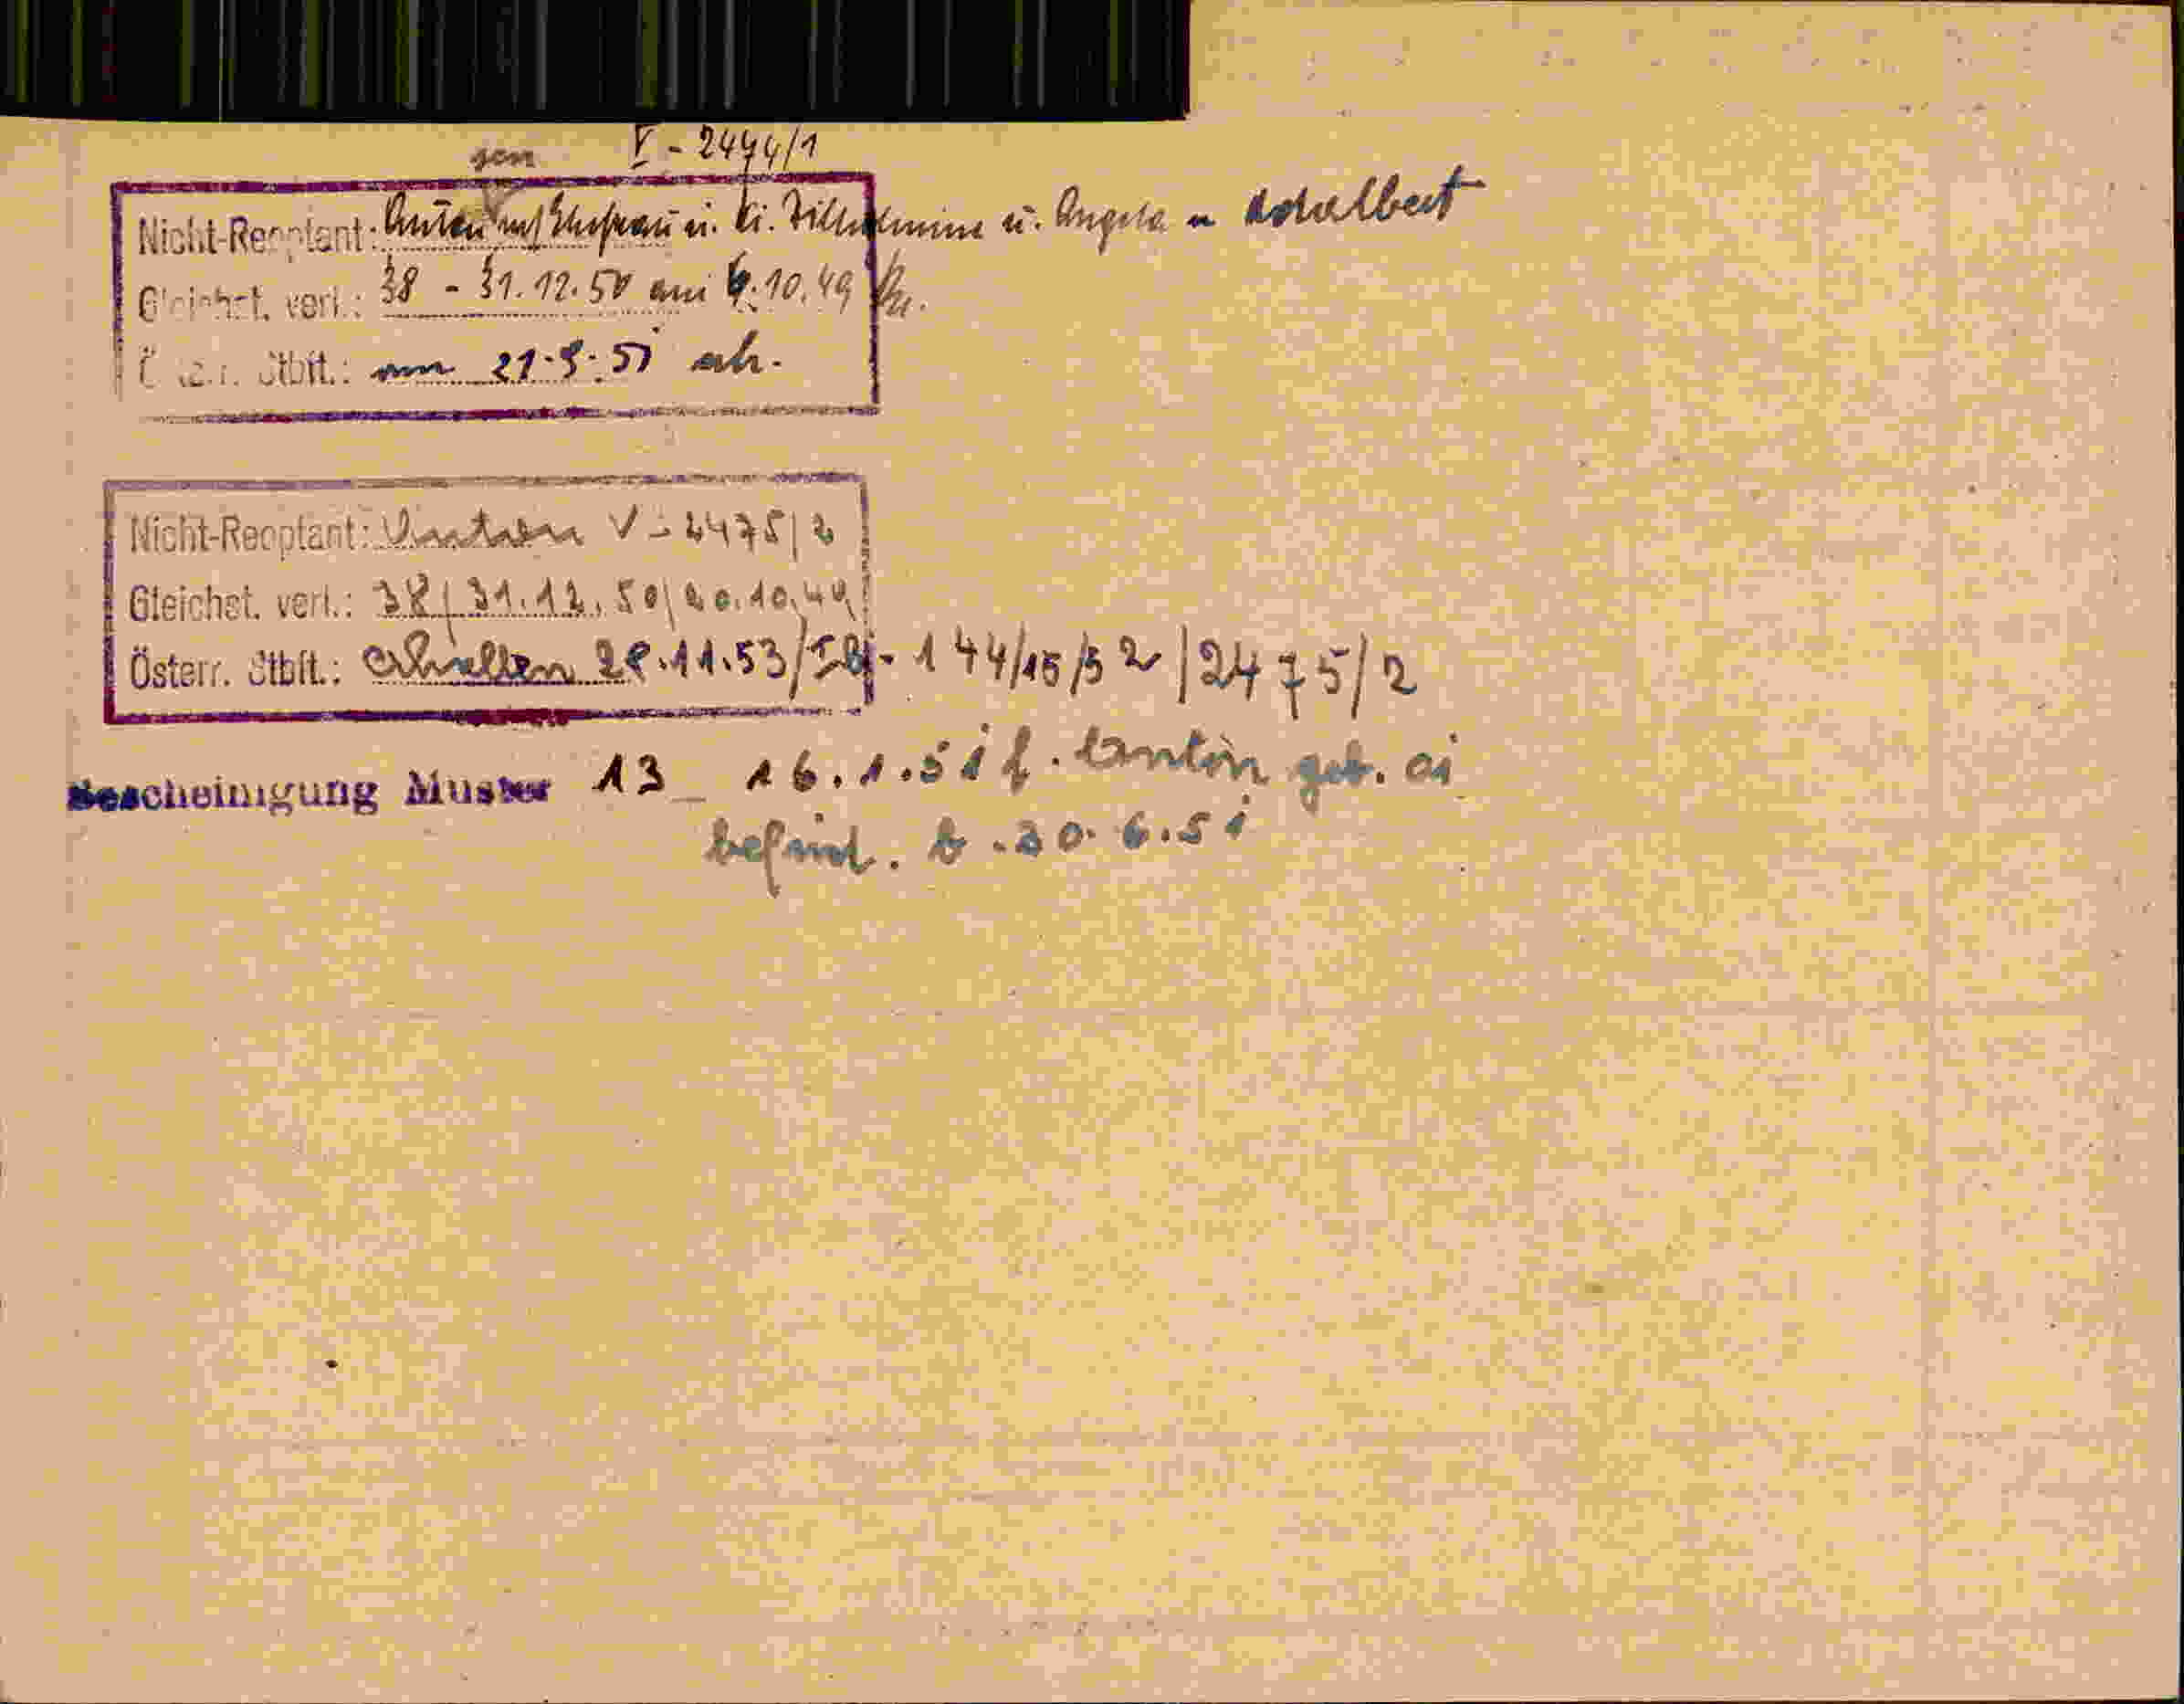 sen V - 2474/1
Nicht-Reoptant: Anton mit Ehefrau u. Ki. Wilhelmine u. Angela u Adalbert
Gleichst. verl.: 38 - 31.12.50 am 6.10.49
Österr. Stbft.: am 21.9.51 erh.
Nicht-Reoptant: Anton V - 2475/2
Gleichst. verl.: 38/31.12.50/20.10.49
Österr. Stbft.: erhalten 28.11.53/ - 144/15/52/2475/2
Bescheinigung Muster 13 16.1.51 f. Anton geb. 01
befrist. b. 30.6.51